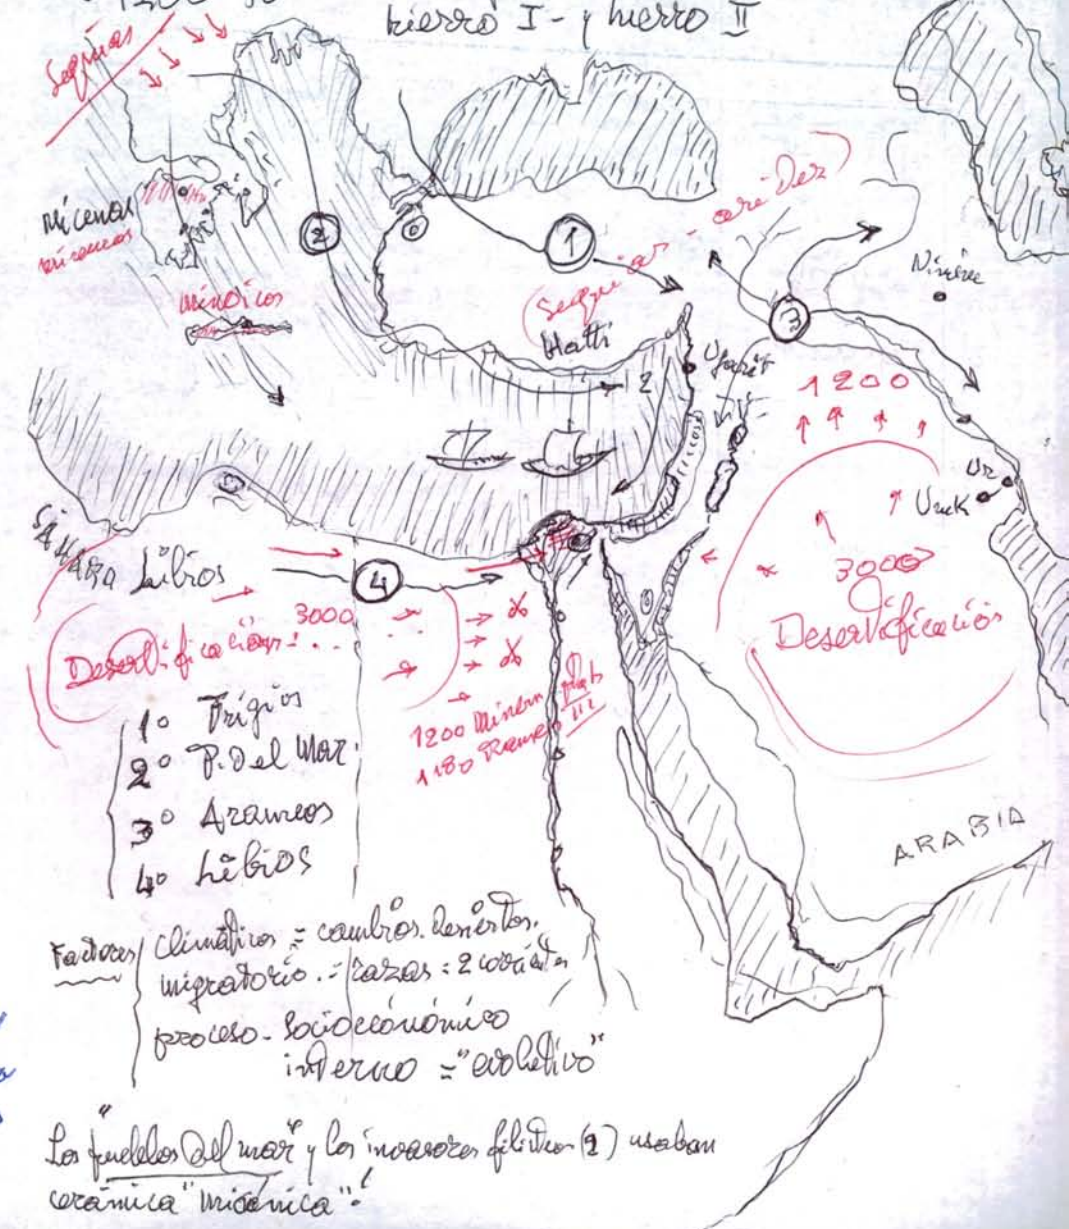 hierro I - y hierro II
Sequías
Micenas
minoicos
1
2
3
4
aridez
Hatti
Ugarit
2
Nínive
1200
Ur
Uruk
3000
Desertificación
SÁHARA Libios
3000
Desertificación...
1200 Minem ptah
1180 Rames III
1º Frigios
2º P. Del Mar
3º Arameos
4º Libios
ARABIA
Factores climáticos = cambios. Desiertos.
migratorio. = razas = 2 corrientes
proceso - socioeconómico
interno = "evolutivo"
Los "pueblos Del mar" y los invasores filisteos (2) usaban
cerámica "micénica".